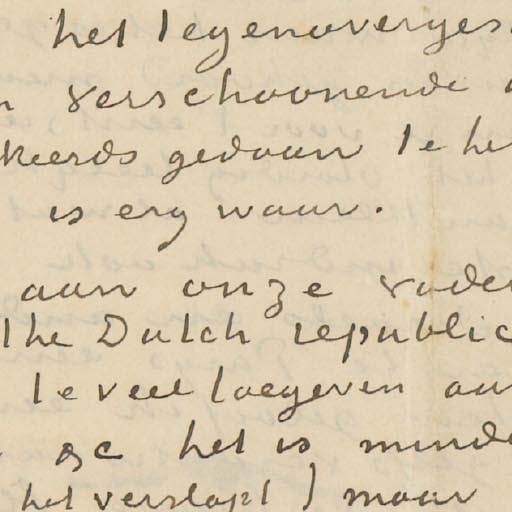 het tegenoverges
verschoonende
keerds gedaan te he
is erg waar.
aan onze vader
the Dutch republic
te veel toegeven aan
het is minde
het verslapt) maar